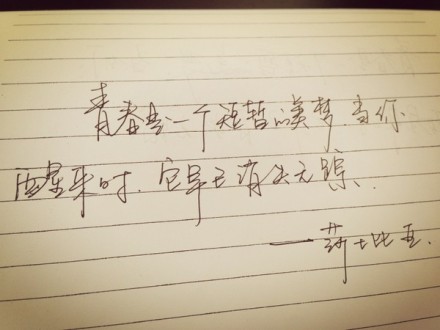 青春是一个短暂的美梦,当你
酒醒来时,它早已消失无踪.
——莎士比亚.